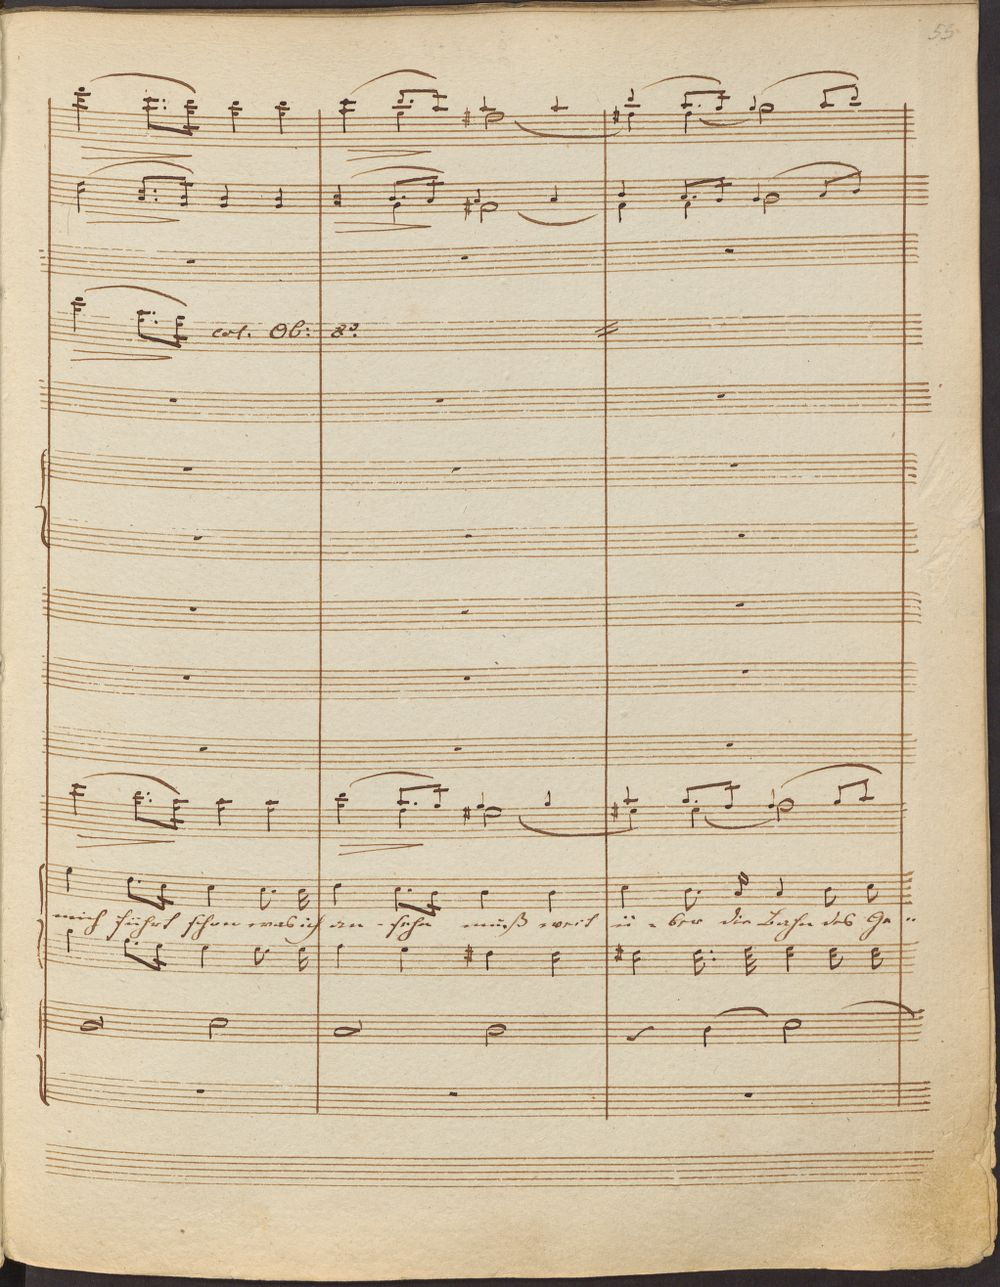 55
col. Ob: 8º
mich führt schon was ich an - sehn muß weit ü - ber die Bahn des Ge -